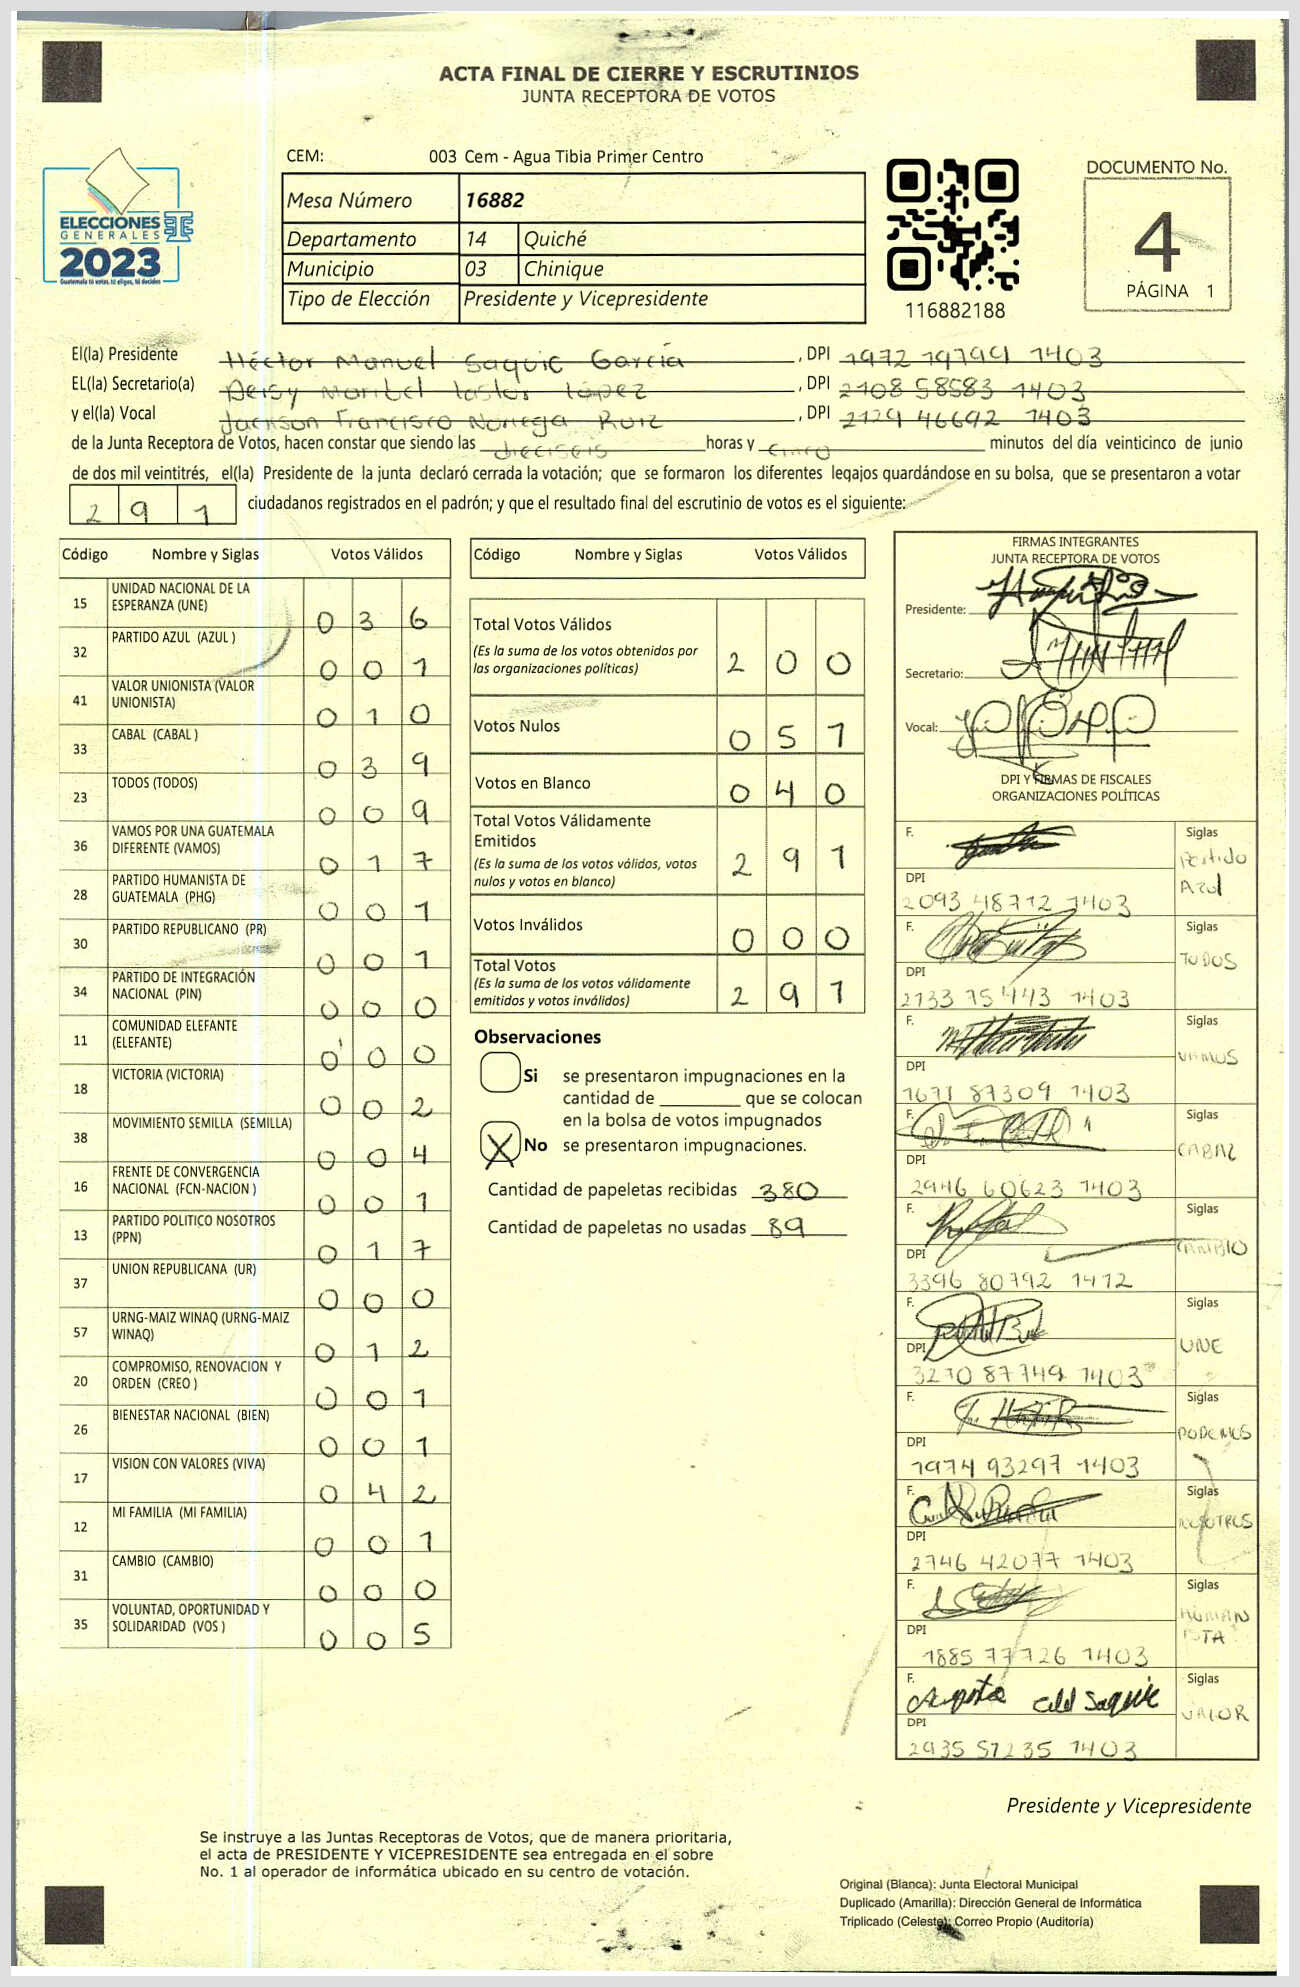 ACTA FINAL DE CIERRE Y ESCRUTINIOS
JUNTA RECEPTORA DE VOTOS
CEM: 003 Cem - Agua Tibia Primer Centro
Mesa Número 16882
Departamento 14 Quiché
Municipio 03 Chinique
Tipo de Elección Presidente y Vicepresidente
ELECCIONES
GENERALES
2023
116882188
DOCUMENTO No.
4
PÁGINA 1
El(la) Presidente Héctor Manuel Saquic García, DPI 1972 19799 1403
EL(la) Secretario(a) Deisy Maribel López, DPI 2108 58583 1403
y el(la) Vocal Jackson Francisco Noriega Ruiz, DPI 2129 46692 1403
de la Junta Receptora de Votos, hacen constar que siendo las dieciseis horas y cinco minutos del día veinticinco de junio
de dos mil veintitrés, el(la) Presidente de la junta declaró cerrada la votación; que se formaron los diferentes legajos guardándose en su bolsa, que se presentaron a votar
2 9 1 ciudadanos registrados en el padrón; y que el resultado final del escrutinio de votos es el siguiente:
Código Nombre y Siglas Votos Válidos
15 UNIDAD NACIONAL DE LA ESPERANZA (UNE) 0 3 6
32 PARTIDO AZUL (AZUL ) 0 0 1
41 VALOR UNIONISTA (VALOR UNIONISTA) 0 1 0
33 CABAL (CABAL ) 0 3 9
23 TODOS (TODOS) 0 0 9
36 VAMOS POR UNA GUATEMALA DIFERENTE (VAMOS) 0 1 7
28 PARTIDO HUMANISTA DE GUATEMALA (PHG) 0 0 1
30 PARTIDO REPUBLICANO (PR) 0 0 1
34 PARTIDO DE INTEGRACIÓN NACIONAL (PIN) 0 0 0
11 COMUNIDAD ELEFANTE (ELEFANTE) 0 0 0
18 VICTORIA (VICTORIA) 0 0 2
38 MOVIMIENTO SEMILLA (SEMILLA) 0 0 4
16 FRENTE DE CONVERGENCIA NACIONAL (FCN-NACION ) 0 0 1
13 PARTIDO POLITICO NOSOTROS (PPN) 0 1 7
37 UNION REPUBLICANA (UR) 0 0 0
57 URNG-MAIZ WINAQ (URNG-MAIZ WINAQ) 0 1 2
20 COMPROMISO, RENOVACION Y ORDEN (CREO ) 0 0 1
26 BIENESTAR NACIONAL (BIEN) 0 0 1
17 VISION CON VALORES (VIVA) 0 4 2
12 MI FAMILIA (MI FAMILIA) 0 0 1
31 CAMBIO (CAMBIO) 0 0 0
35 VOLUNTAD, OPORTUNIDAD Y SOLIDARIDAD (VOS ) 0 0 5
Código Nombre y Siglas Votos Válidos
Total Votos Válidos
(Es la suma de los votos obtenidos por
las organizaciones políticas) 2 0 0
Votos Nulos 0 5 1
Votos en Blanco 0 4 0
Total Votos Válidamente
Emitidos
(Es la suma de los votos válidos, votos
nulos y votos en blanco) 2 9 1
Votos Inválidos 0 0 0
Total Votos
(Es la suma de los votos válidamente
emitidos y votos inválidos) 2 9 1
Observaciones
Si se presentaron impugnaciones en la
cantidad de ________ que se colocan
en la bolsa de votos impugnados
X No se presentaron impugnaciones.
Cantidad de papeletas recibidas 380
Cantidad de papeletas no usadas 89
FIRMAS INTEGRANTES
JUNTA RECEPTORA DE VOTOS
Presidente:
Secretario:
Vocal:
DPI Y FIRMAS DE FISCALES
ORGANIZACIONES POLÍTICAS
F. Siglas Partido Azul
DPI 2093 48712 1403
F. Siglas TODOS
DPI 2133 75443 1403
F. Siglas VAMOS
DPI 1671 87309 1403
F. Siglas CABAL
DPI 2946 60623 1403
F. Siglas CAMBIO
DPI 3396 80792 1412
F. Siglas UNE
DPI 3270 87749 1403
F. Siglas PODEMOS
DPI 1974 93297 1403
F. Siglas NOSOTROS
DPI 2746 42077 1403
F. Siglas HUMANISTA
DPI 1885 77726 1403
F. Siglas VALOR
DPI 2935 57235 1403
Presidente y Vicepresidente
Se instruye a las Juntas Receptoras de Votos, que de manera prioritaria,
el acta de PRESIDENTE Y VICEPRESIDENTE sea entregada en el sobre
No. 1 al operador de informática ubicado en su centro de votación.
Original (Blanca): Junta Electoral Municipal
Duplicado (Amarilla): Dirección General de Informática
Triplicado (Celeste): Correo Propio (Auditoría)